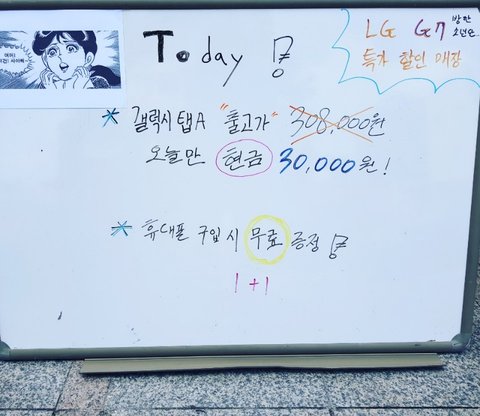 Today
LG G7 방탄
소년단
특가 할인 매장
* 갤럭시탭A "출고가" 308,000원
오늘만 현금 30,000원!
* 휴대폰 구입시 무료 증정
1+1